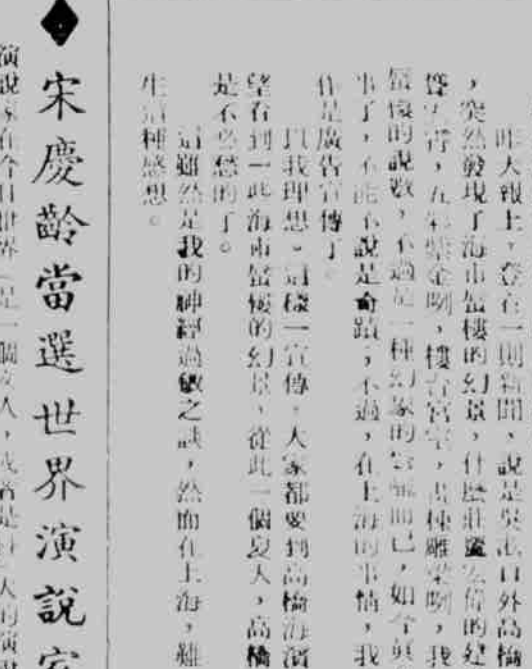 昨天報上，登在一則新聞，說是吳淞口外高橋
，突然發現了海市蜃樓的幻景，什麼莊嚴宏偉的建
，五彩紫金咧，樓台宮室，雕梁咧，我
蜃樓的說數，不過是一種幻象的而已，如今與
事了，不能不說是奇蹟，不過，在上海的事情，我
作是廣告宣傳了。
以我理想。這樣一宣傳。大家都要到高橋海濱
望看到一些海市蜃樓的幻景，從此一個夏天，高橋
是不必愁的了。
這雖然是我的神經過敏之談，然而在上海，難
生這種感想。
宋慶齡當選世界演說家
演說家在今日世界，是一個女人，或者是